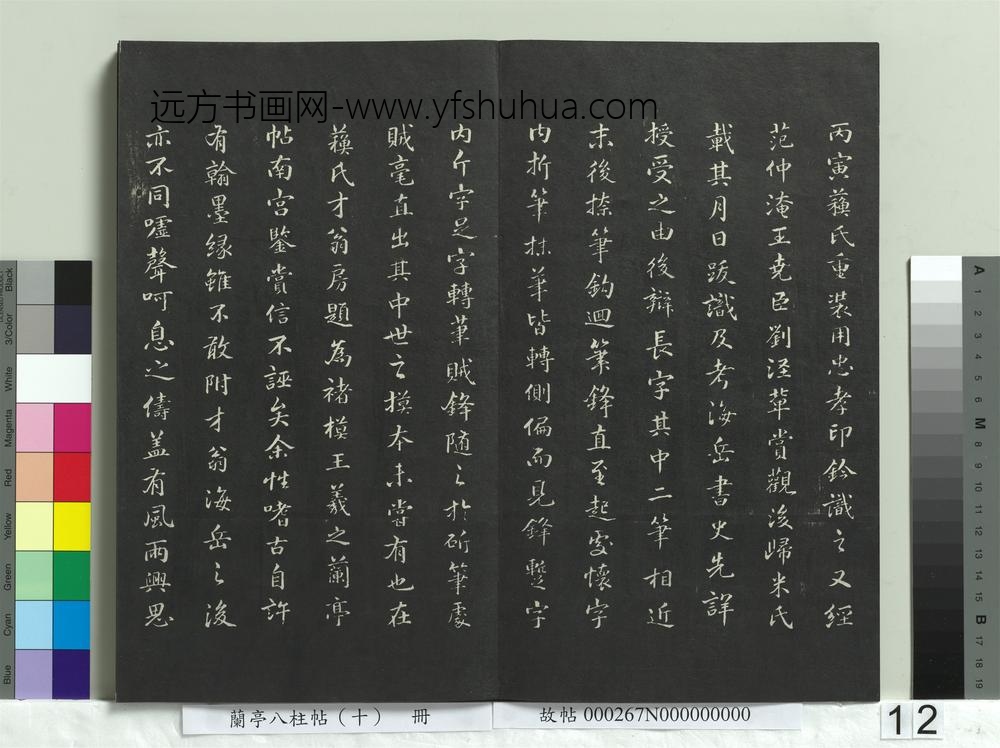 远方书画网-www.yfshuhua.com
丙寅蘓氏重装用忠孝印鈐識之又經
范仲淹王尭臣劉涇輩賞觀後歸米氏
載其月日跋識及考海岳書史先詳
授受之由後辯長字其中二筆相近
末後捺筆鈎迴筆鋒直至起處懷字
内折筆抹筆皆轉側偏而見鋒蹔字
内斤字足字轉筆賊鋒随之於斫筆處
賊毫直出其中世之摸本未嘗有也在
蘓氏才翁房題為褚模王羲之蘭亭
帖南宫鑒賞信不誣矣余性嗜古自許
有翰墨縁雖不敢附才翁海岳之後
亦不同嘘聲呵息之儔盖有風雨興思
蘭亭八柱帖（十） 冊
故帖 000267N000000000
12
Black
3/Color
White
Magenta
Red
Yellow
Green
Cyan
Blue
A
1
2
3
4
5
6
M
8
9
10
11
12
13
14
15
B
17
18
19